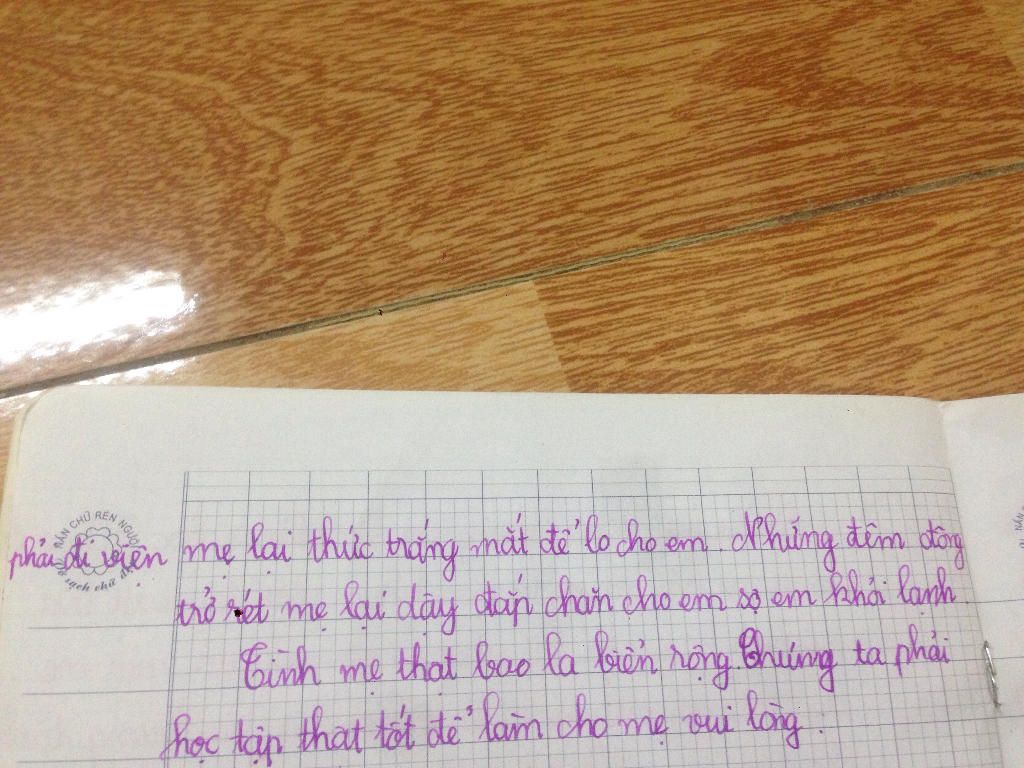 NẮN CHỮ RÈN NGƯỜI
phải đi viện mẹ lại thức trắng mắt để lo cho em. Những đêm đông
trở rét mẹ lại dậy đắp chăn cho em sợ em khỏi lạnh.
Tình mẹ thật bao la biển rộng Chúng ta phải
học tập thật tốt để làm cho mẹ vui lòng.